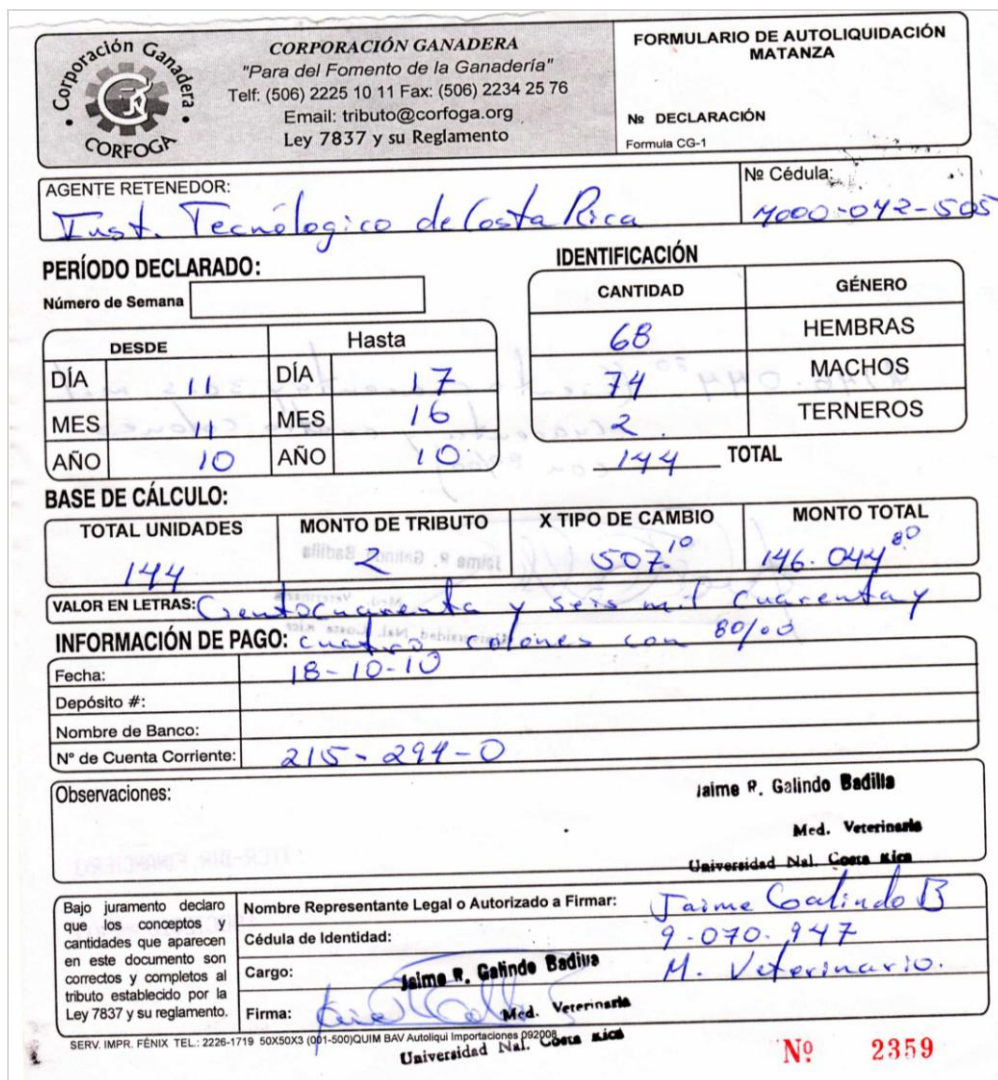 Corporación Ganadera
CORFOGA
CORPORACIÓN GANADERA
"Para del Fomento de la Ganadería"
Telf: (506) 2225 10 11 Fax: (506) 2234 25 76
Email: tributo@corfoga.org
Ley 7837 y su Reglamento
FORMULARIO DE AUTOLIQUIDACIÓN
MATANZA
Nº DECLARACIÓN
Formula CG-1
AGENTE RETENEDOR:
Inst. Tecnólogico de Costa Rica
Nº Cédula:
4000-042-505
PERÍODO DECLARADO:
Número de Semana
DESDE Hasta
DÍA 11 DÍA 17
MES 11 MES 16
AÑO 10 AÑO 10.
IDENTIFICACIÓN
CANTIDAD GÉNERO
68 HEMBRAS
74 MACHOS
2. TERNEROS
144 TOTAL
BASE DE CÁLCULO:
TOTAL UNIDADES MONTO DE TRIBUTO X TIPO DE CAMBIO MONTO TOTAL
144 2 507.10 146.044 80
VALOR EN LETRAS: Cientocuarenta y seis mil cuarenta y
cuatro colones con 80/00
INFORMACIÓN DE PAGO:
Fecha: 18-10-10
Depósito #:
Nombre de Banco:
N° de Cuenta Corriente: 215-294-0
Observaciones:
Jaime R. Galindo Badilla
Med. Veterinaria
Universidad Nal. Costa Rica
Bajo juramento declaro
que los conceptos y
cantidades que aparecen
en este documento son
correctos y completos al
tributo establecido por la
Ley 7837 y su reglamento.
Nombre Representante Legal o Autorizado a Firmar: Jaime Galindo B
Cédula de Identidad: 9-070-947
Cargo: M. Veterinario.
Firma:
Jaime R. Galindo Badilla
Med. Veterinaria
Universidad Nal. Costa Rica
SERV. IMPR. FÉNIX TEL.: 2226-1719 50X50X3 (001-500)QUIM BAV Autoliqui Importaciones 092008
Nº 2359